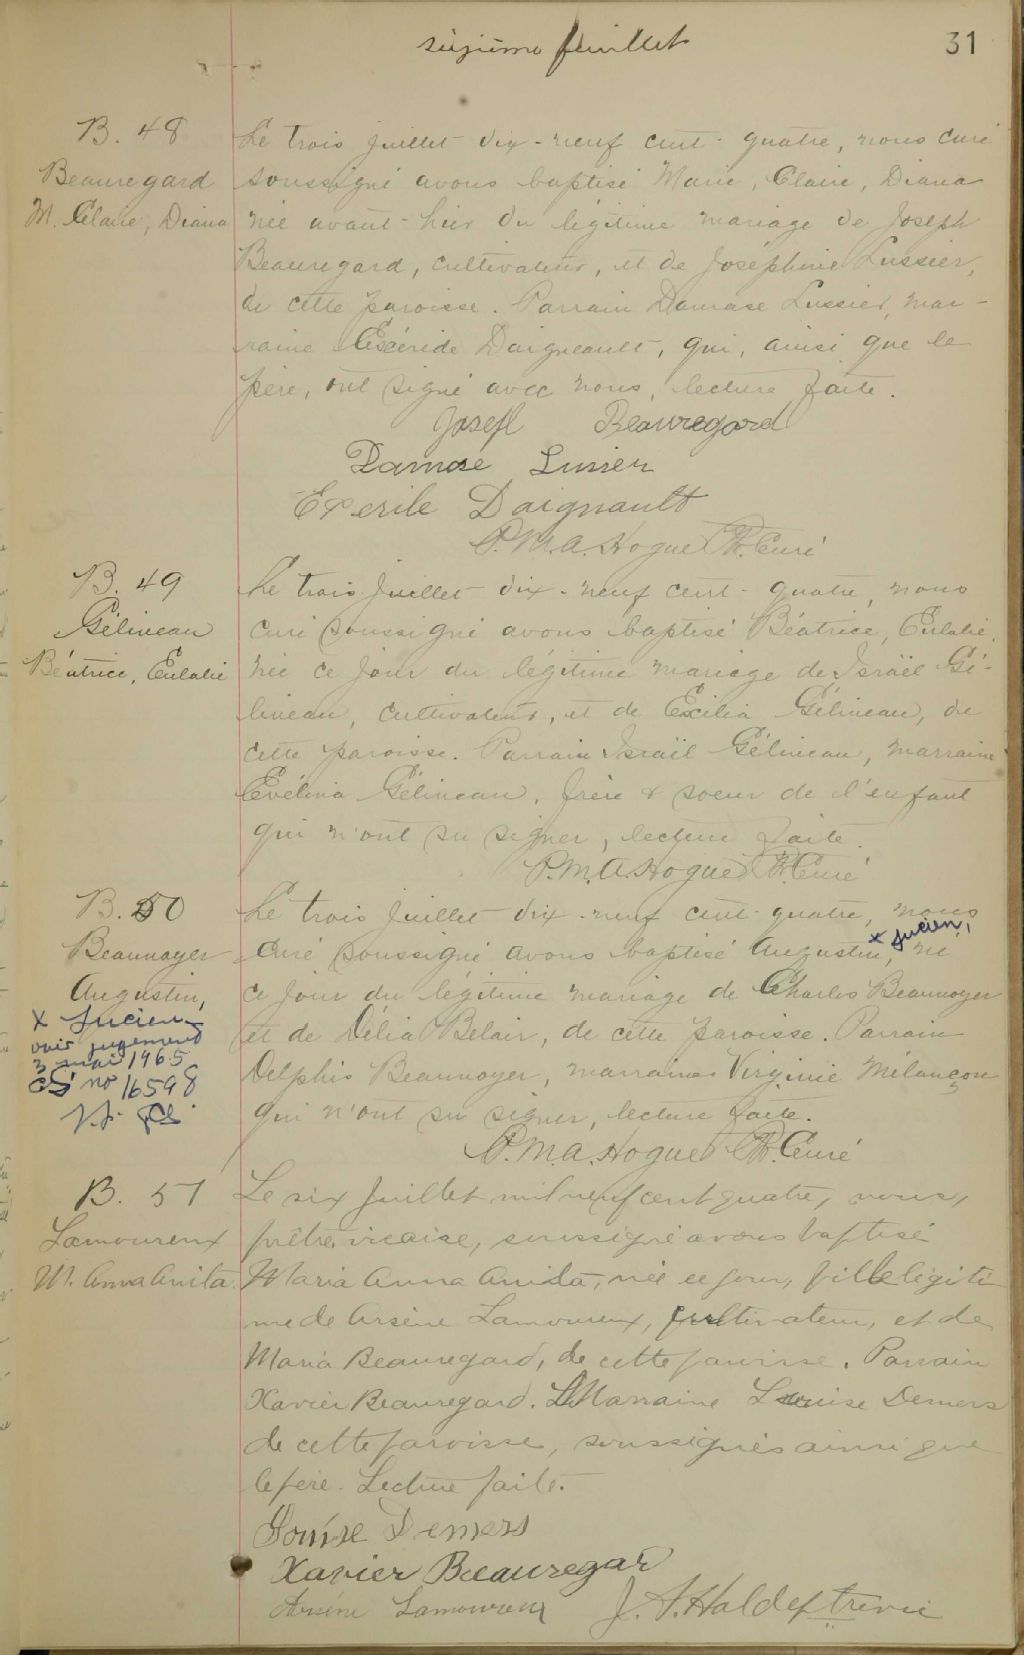 sixième feuillet
31
B. 48
Beauregard
M. Claire, Diana
Le trois juillet dix-neuf cent-quatre, nous curé
soussigné avons baptisé Marie, Claire, Diana
née avant-hier du légitime mariage de Joseph
Beauregard, cultivateur, et de Joséphine Lussier,
de cette paroisse. Parrain Damase Lussier, mar-
raine Exéride Daigneault, qui, ainsi que le
père, ont signé avec nous, lecture faite.
Josefl Beauregard
Damase Lussier
Exerile Daignault
P.M.A. Hogue Ptr. Curé
B. 49
Gélineau
Béatrice, Eulalie
Le trois juillet dix-neuf cent-quatre, nous
curé soussigné avons baptisé Béatrice, Eulalie,
née ce jour du légitime mariage de Israël Gé-
lineau, cultivateur, et de Exilia Gélineau, de
cette paroisse. Parrain Israïl Gélineau, marraine
Evélina Gélineau, frère & soeur de l'enfant
qui n'ont su signer, lecture faite.
P.M.A. Hogue Ptr. Curé
B. 50
Beaunoyer
Augustin,
x Lucien
voir jugement
3 mai 1965
CS no 16598
Le trois juillet dix-neuf cent-quatre, nous
curé soussigné avons baptisé Augustin, x Lucien, né
ce jour du légitime mariage de Charles Beaunoyer
et de Délia Belair, de cette paroisse. Parrain
Delphis Beaunoyer, marraine Virginie Mélançon
qui n'ont su signer, lecture faite.
P.M.A. Hogue Ptr. Curé
B. 51
Lamoureux
M. Anna Anita
Le six Juillet mil neuf cent quatre, nous,
prêtre vicaire, soussigné avons baptisé
Maria Anna Anita, née ce jour, fille légiti
me de Arsène Lamoureux, cultivateur, et de
Maria Beauregard, de cette paroisse. Parrain
Xavier Beauregard. Marraine Louise Demers
de cette paroisse, soussignés ainsi que
le père. Lecture faite.
Louise Demers
Xavier Beauregar
Arsène Lamoureux